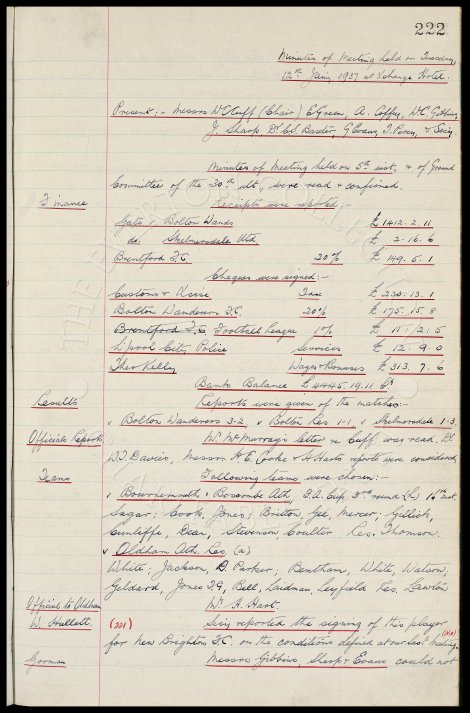 222
Minutes of Meeting held on Tuesday,
12th Jany 1937 at Exchange Hotel.
Present:- Messrs W.C. Cuff (Chair) E. Green, A. Coffey, W.C. Gibbins
J. Sharp, Dr. C.S. Baxter, G. Evans, T. Percy, & Secy.
Minutes of Meeting held on 5th inst, & of Ground
Committee of the 30th ult, were read & confirmed.
Finance Receipts were reported:-
Gate v Bolton Wands £ 1412. 2. 11
do. Skelmersdale Utd £ 2. 16. 6
Brentford F.C. 20% £ 149. 5. 1
Cheques were signed:-
Customs & Excise Tax £ 230. 13. 1
Bolton Wanderers F.C. 20% £ 175. 15. 8
Brentford F.C. Football League 1% £ 11. 2. 5
L'pool City Police Services £ 12. 9. 0
Theo Kelly Wages & Bonuses £ 313. 7. 6
Bank Balance £4445. 19. 11 Cr
Results Reports were given of the matches:-
v Bolton Wanderers 3-2 v Bolton Res 1-1 v Skelmersdale 1-3.
Officials Reports Mr. McMurray's letter re Cuff was read, Dr
W.J. Davies, Messrs H.E. Cooke & H. Harts reports were considered.
Teams Following teams were chosen:-
v Bournemouth & Boscombe Ath, F.A. Cup 3rd round (h) 16th inst.
Sagar; Cook, Jones; Britton, Gee, Mercer; Gillick,
Cunliffe, Dean, Stevenson Coulter Res. Thomson.
v Oldham Ath. Res. (a)
White; Jackson, Parker; Bentham, White, Watson.
Geldard, Jones T.G, Bell, Laidman, Leyfield Res. Lawton
Official to Oldham Mr. H. Hart.
W. Hullett. (221) Secy reported the signing of this player
for New Brighton F.C. on the conditions defined at our last meeting.
Gorman Messrs Gibbins, Sharp & Evans could not